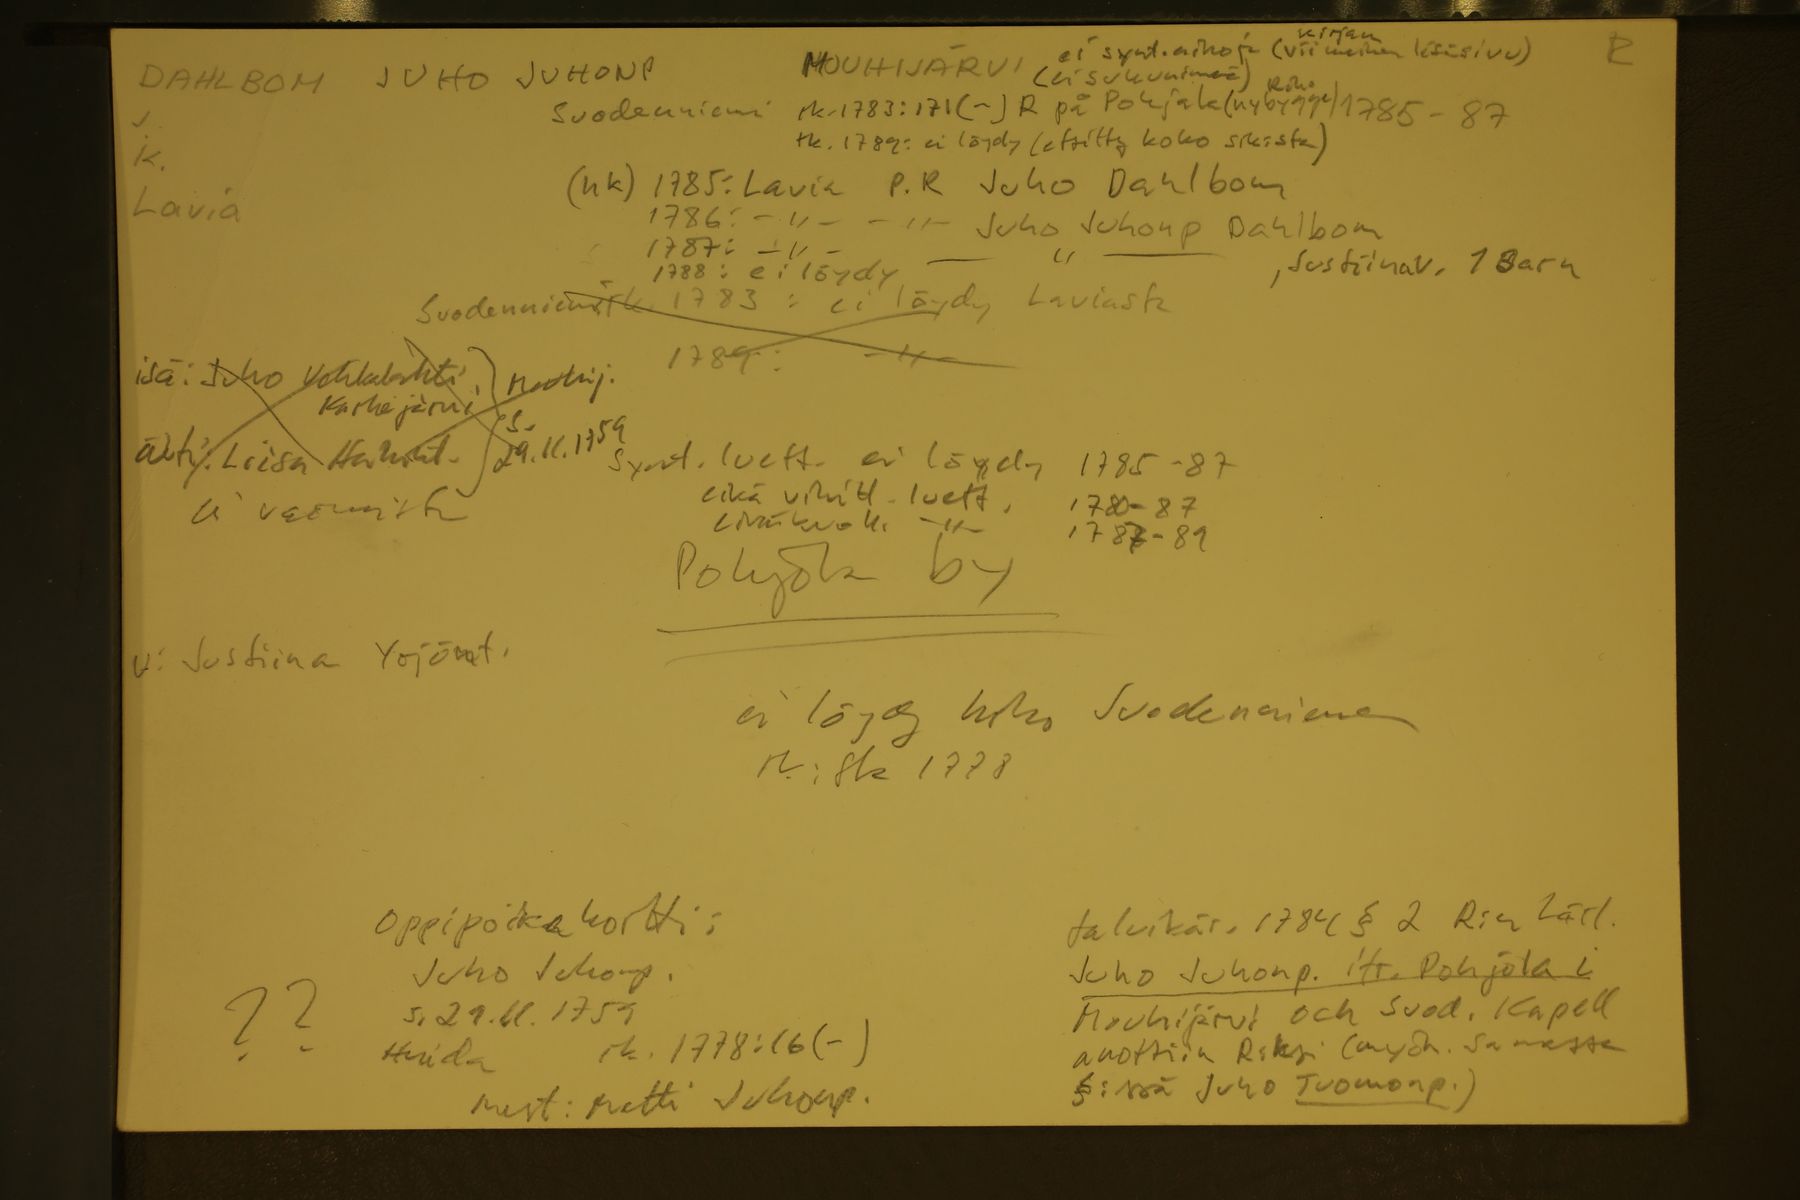 DAHLBOM JUHO JUHONP MOUHIJÄRVI ei synt.aikoja (kirjan viimeinen lisäsivu) R
(ei sukunimeä)
s. Suodenniemi rk.1783:171(-) R på Pohjala (nybygge) 1785-87
k. rk. 1789: ei löydy (etsitty koko sk:sta)
Lavia (hk) 1785: Lavia P.R Juho Dahlbom
1786: -"- -"- Juho Juhonp Dahlbom
1787: -"- — " — , Justiina v. 1 Barn
1788: ei löydy
Suodenniemi rk. 1783: ei löydy Laviasta
1789: -"-
isä: Juho Mouhij.
Karhejärvi
äiti: Liisa s. 29.11.1759
ei varmista
Synt. luett. ei löydy 1785-87
eikä vihitt. luett. 1780-87
-"- 1787-89
Pohjola by
v: Justiina Yrjönt.
ei löydy koko Suodenniemen
rk:sta 1778
Oppipoikakortti:
Juho Juhonp.
s. 29.11.1759
?? rk. 1778:16(-)
mest: Matti Juhonp.
talvikär. 1784 § 2 R:n Lärl.
Juho Juhonp. ifr. Pohjola i
Mouhijärvi och Suod. Kapell
anottiin R:ksi (myöh. samassa
§:ssä Juho Tuomonp.)